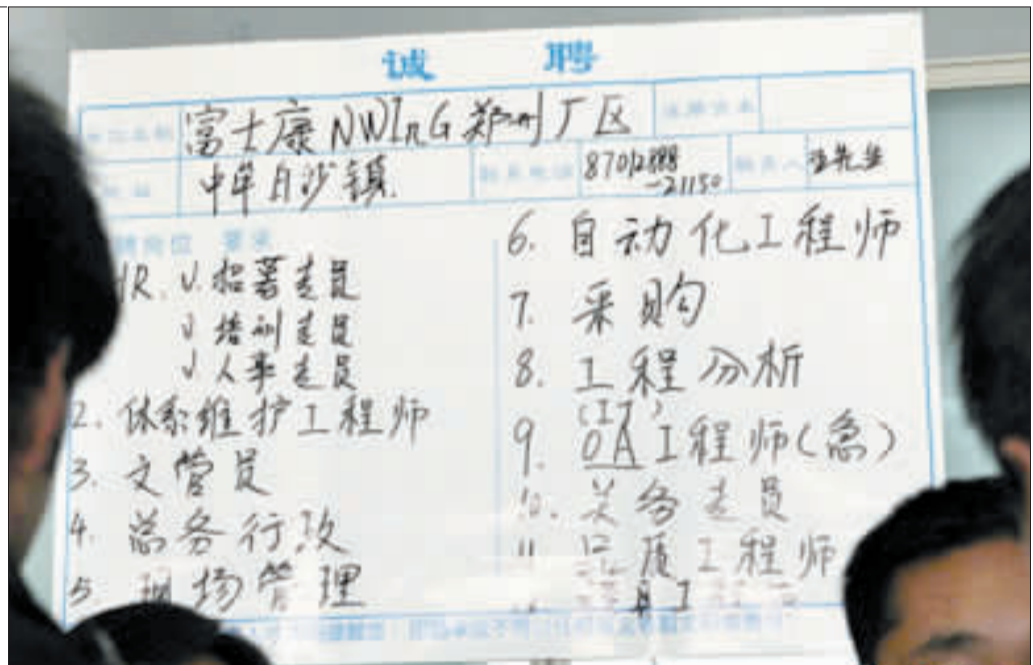 诚 聘
富士康NWInG郑州厂区
中牟白沙镇
87012888
-21150
张先生
聘岗位 要求
HR √招募专员
√培训专员
√人事专员
2. 体系维护工程师
3. 文管员
4. 总务行政
5 现场管理
6. 自动化工程师
7. 采购
8. 工程分析
(IT)
9. OA工程师(急)
10. 关务专员
11 品质工程师